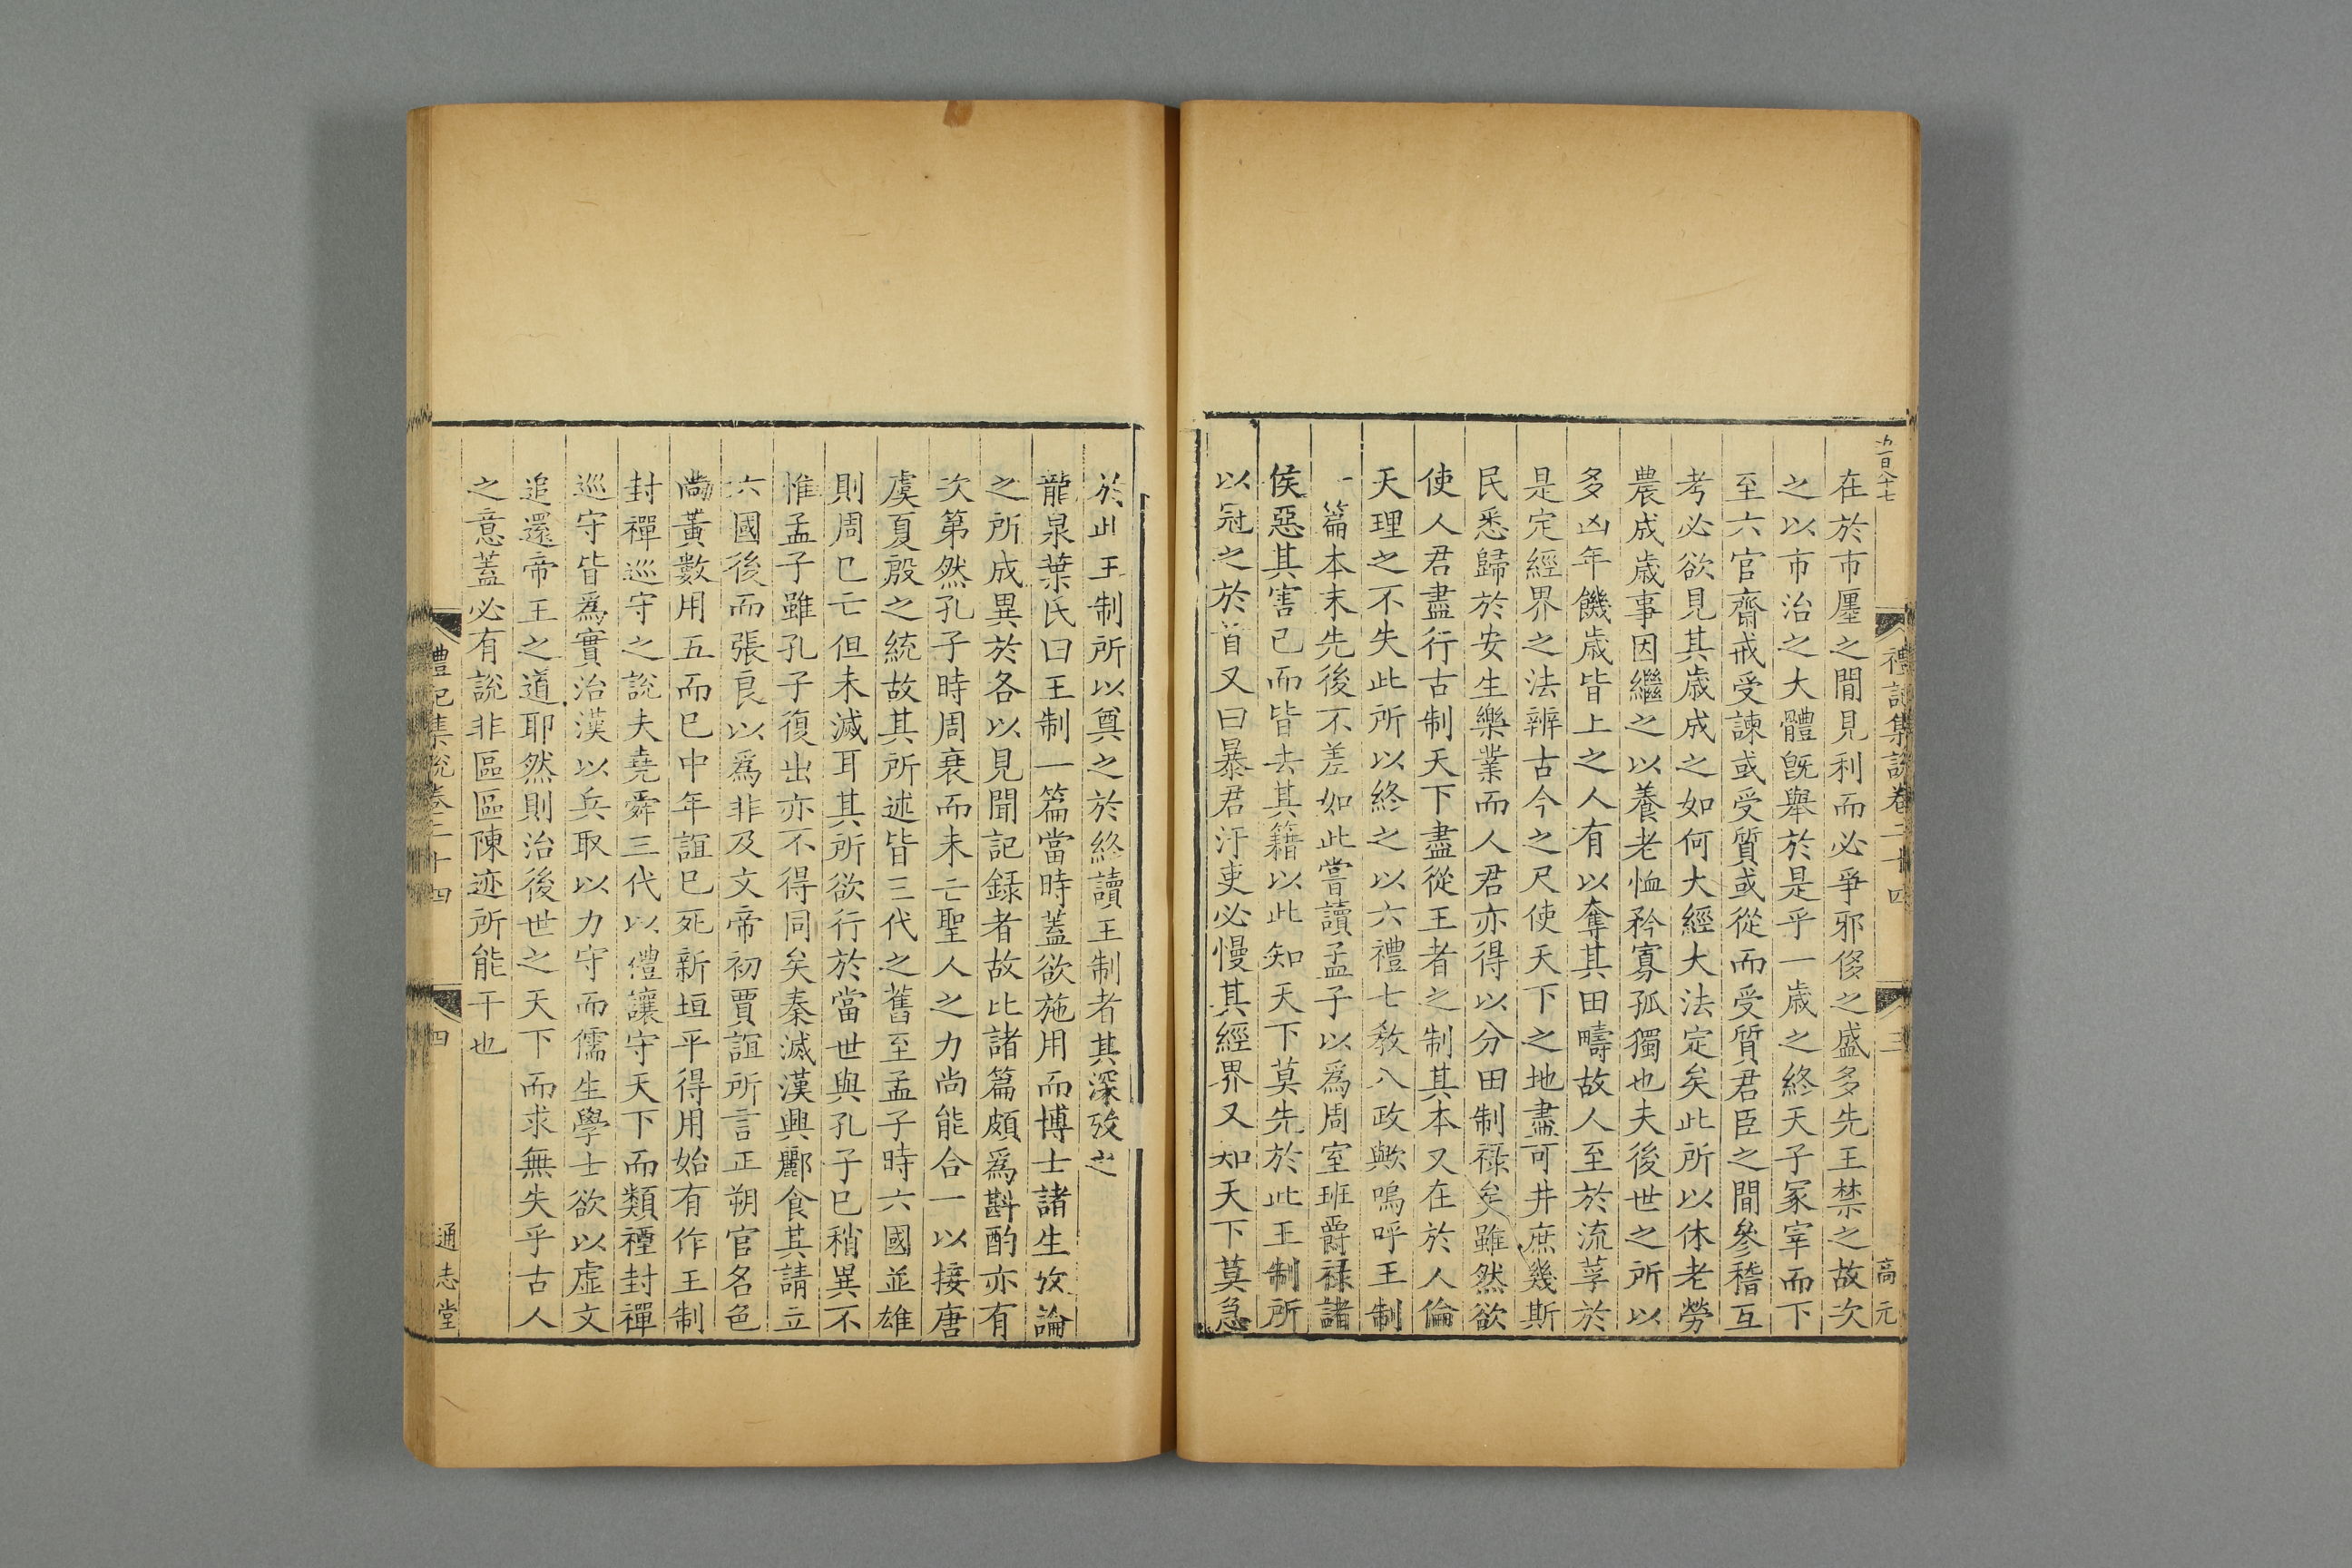 禮記集說卷二十四
三
高元
在於市廛之間見利而必爭邪侈之盛多先王禁之故次
之以市治之大體旣舉於是乎一歲之終天子冢宰而下
至六官齋戒受諫或受質或從而受質君臣之間參稽互
考必欲見其歲成之如何大經大法定矣此所以休老勞
農成歲事因繼之以養老恤矜寡孤獨也夫後世之所以
多凶年饑歲皆上之人有以奪其田疇故人至於流莩於
是定經界之法辨古今之尺使天下之地盡可井庶幾斯
民悉歸於安生樂業而人君亦得以分田制祿矣雖然欲
使人君盡行古制天下盡從王者之制其本又在於人倫
天理之不失此所以終之以六禮七教八政歟嗚呼王制
一篇本末先後不差如此嘗讀孟子以爲周室班爵祿諸
侯惡其害己而皆去其籍以此知天下莫先於此王制所
以冠之於首又曰暴君汙吏必慢其經界又知天下莫急
於此王制所以奠之於終讀王制者其深攷之
龍泉葉氏曰王制一篇當時蓋欲施用而博士諸生攷論
之所成異於各以見聞記録者故比諸篇頗爲斟酌亦有
次第然孔子時周衰而未亡聖人之力尚能合一以接唐
虞夏殷之統故其所述皆三代之舊至孟子時六國並雄
則周已亡但未滅耳其所欲行於當世與孔子已稍異不
惟孟子雖孔子復出亦不得同矣秦滅漢興酈食其請立
六國後而張良以爲非及文帝初賈誼所言正朔官名色
尚黃數用五而已中年誼已死新垣平得用始有作王制
封禪巡守之說夫堯舜三代以禮讓守天下而類禋封禪
巡守皆爲實治漢以兵取以力守而儒生學士欲以虛文
追還帝王之道耶然則治後世之天下而求無失乎古人
之意蓋必有說非區區陳迹所能干也
禮記集說卷二十四
四
通志堂